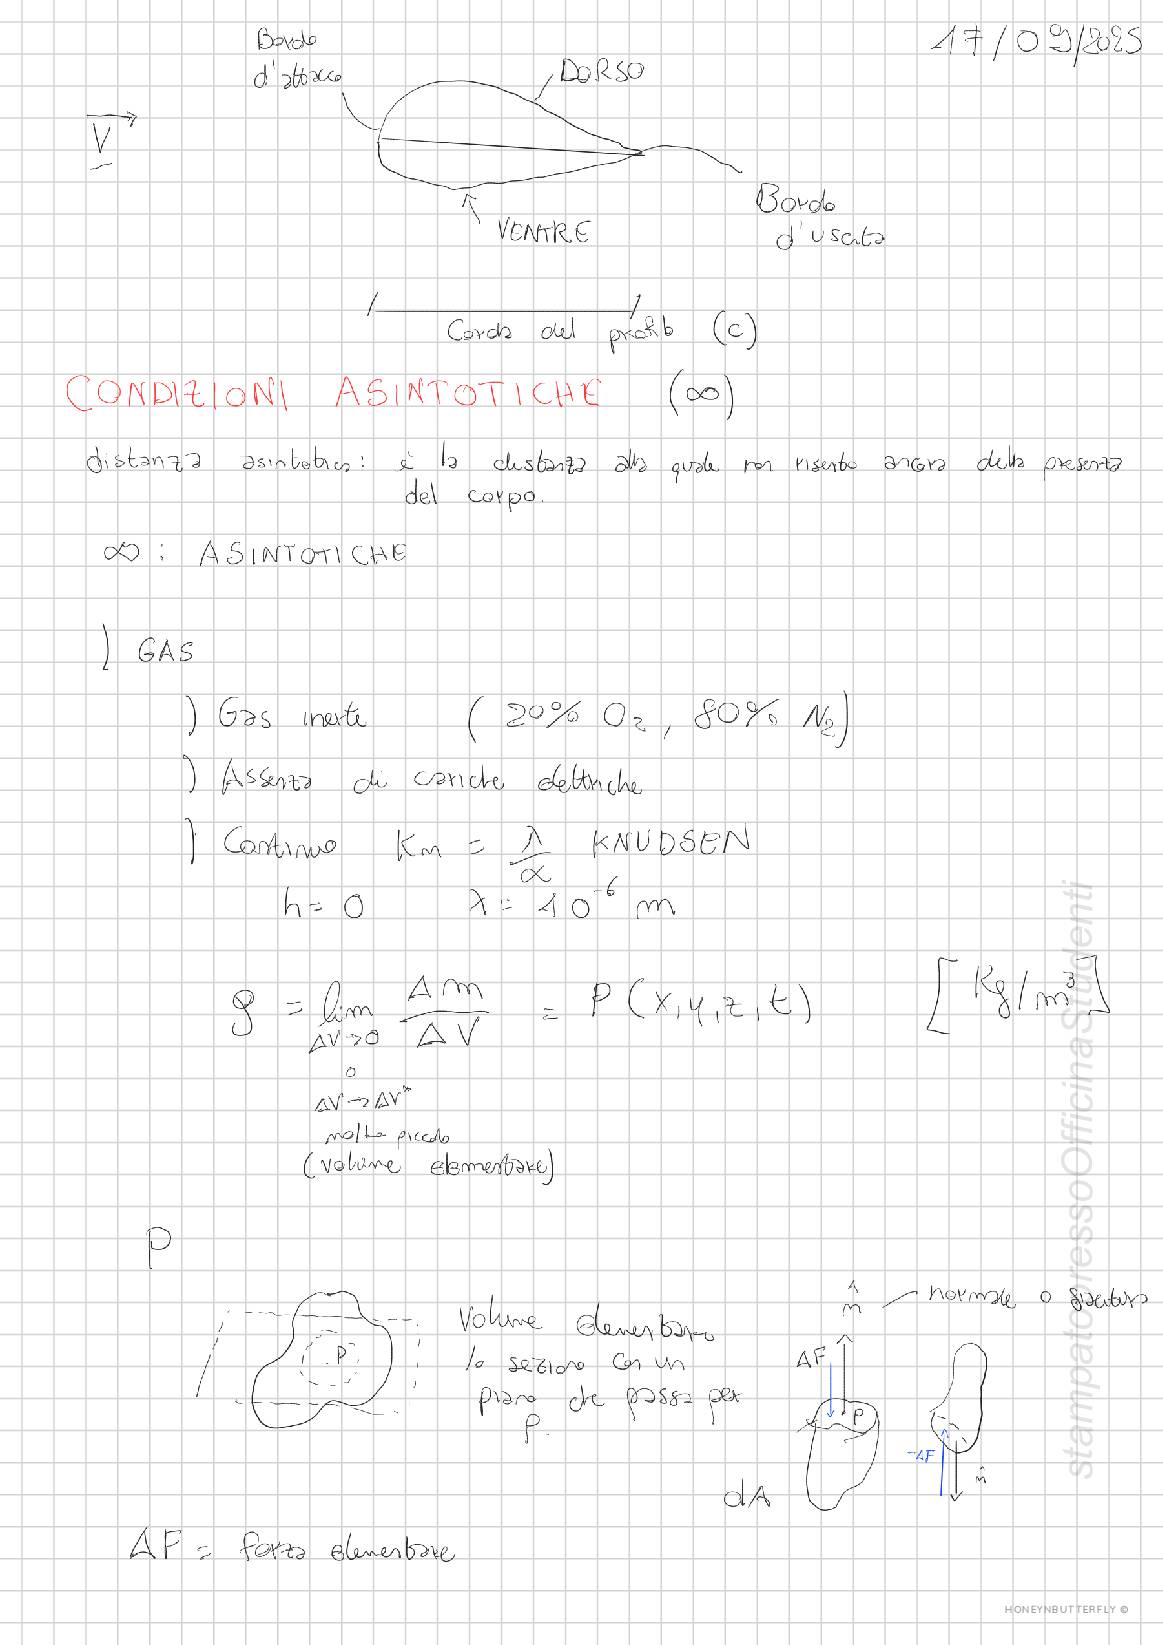 17/09/2025
Bordo
d'attacco
DORSO
V
Bordo
d'uscita
VENTRE
Corda del profilo (c)
CONDIZIONI ASINTOTICHE (∞)
distanza asintotica: è la distanza alla quale non risento ancora della presenza
del corpo.
∞ : ASINTOTICHE
) GAS
) Gas inerte (20% O₂, 80% N₂)
) Assenza di cariche elettriche
) Continuo Kn = λ/α KNUDSEN
h = 0 λ = 10⁻⁶ m
ρ = lim ΔV→0 Δm/ΔV = P(x,y,z,t) [Kg/m³]
o
ΔV→ΔV*
molto piccolo
(volume elementare)
P
n̂ normale o
P
Volume elementare
lo seziono con un
piano che passa per
P.
ΔF
P
-ΔF
n̂
dA
ΔF = forza elementare
stampatopressoOfficinaStudenti
HONEYNBUTTERFLY ©